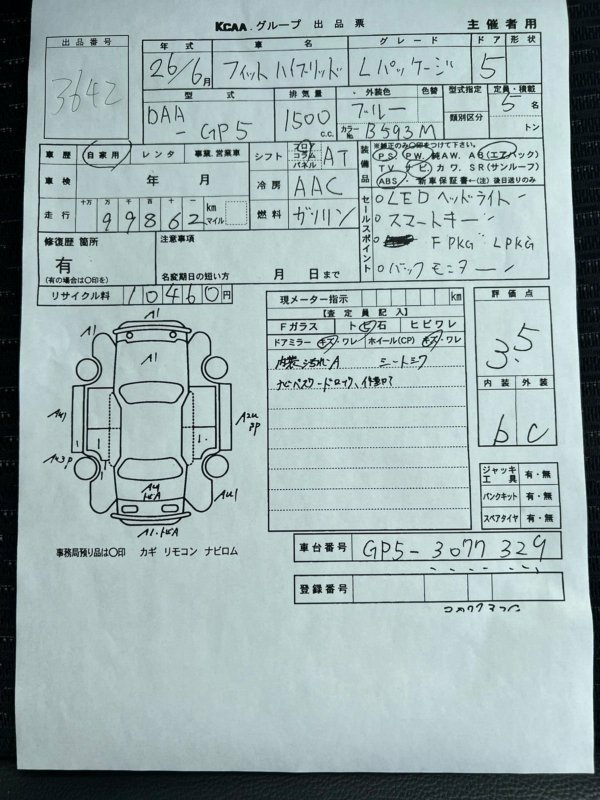 KCAA.グループ 出品票 主催者用
出品番号
3642
年式 車名 グレード ドア 形状
26/6月 フィットハイブリッド Lパッケージ 5
型式 排気量 外装色 色替 型式指定 定員・積載
DAA-GP5 1500 c.c. ブルー 類別区分 5名
カラーNo. B593M トン
車歴 自家用 レンタ 事業、営業車
シフト フロア コラム パネル AT
車検 年 月
冷房 AAC
走行 十万 万 千 百 十 一 km マイル
99862
燃料 ガソリン
装備品 ※純正のみ〇印をつけて下さい。
PS PW. 純AW. AB(エアバック)
TV ナビ カワ. SR(サンルーフ)
ABS 新車保証書←(注)後日送りのみ
セールスポイント
LEDヘッドライト
スマートキー
FPKG LPKG
バックモニター
修復歴 箇所
有
(有の場合は〇印を)
注意事項
名変期日の短い方 月 日まで
リサイクル料 10460円
現メーター指示 km
【査定員記入】
Fガラス トビ石 ヒビワレ
ドアミラー キズ・ワレ ホイール(CP) キズ・ワレ
内装 汚れA シートミワ
ナビパスワードロック、作動ロ?
評価点
3.5
内装 外装
b C
ジャッキ工具 有・無
パンクキット 有・無
スペアタイヤ 有・無
A1 A1
A1
A2U
A1 トビA
事務局預り品は〇印 カギ リモコン ナビロム
車台番号 GP5-3077329
登録番号